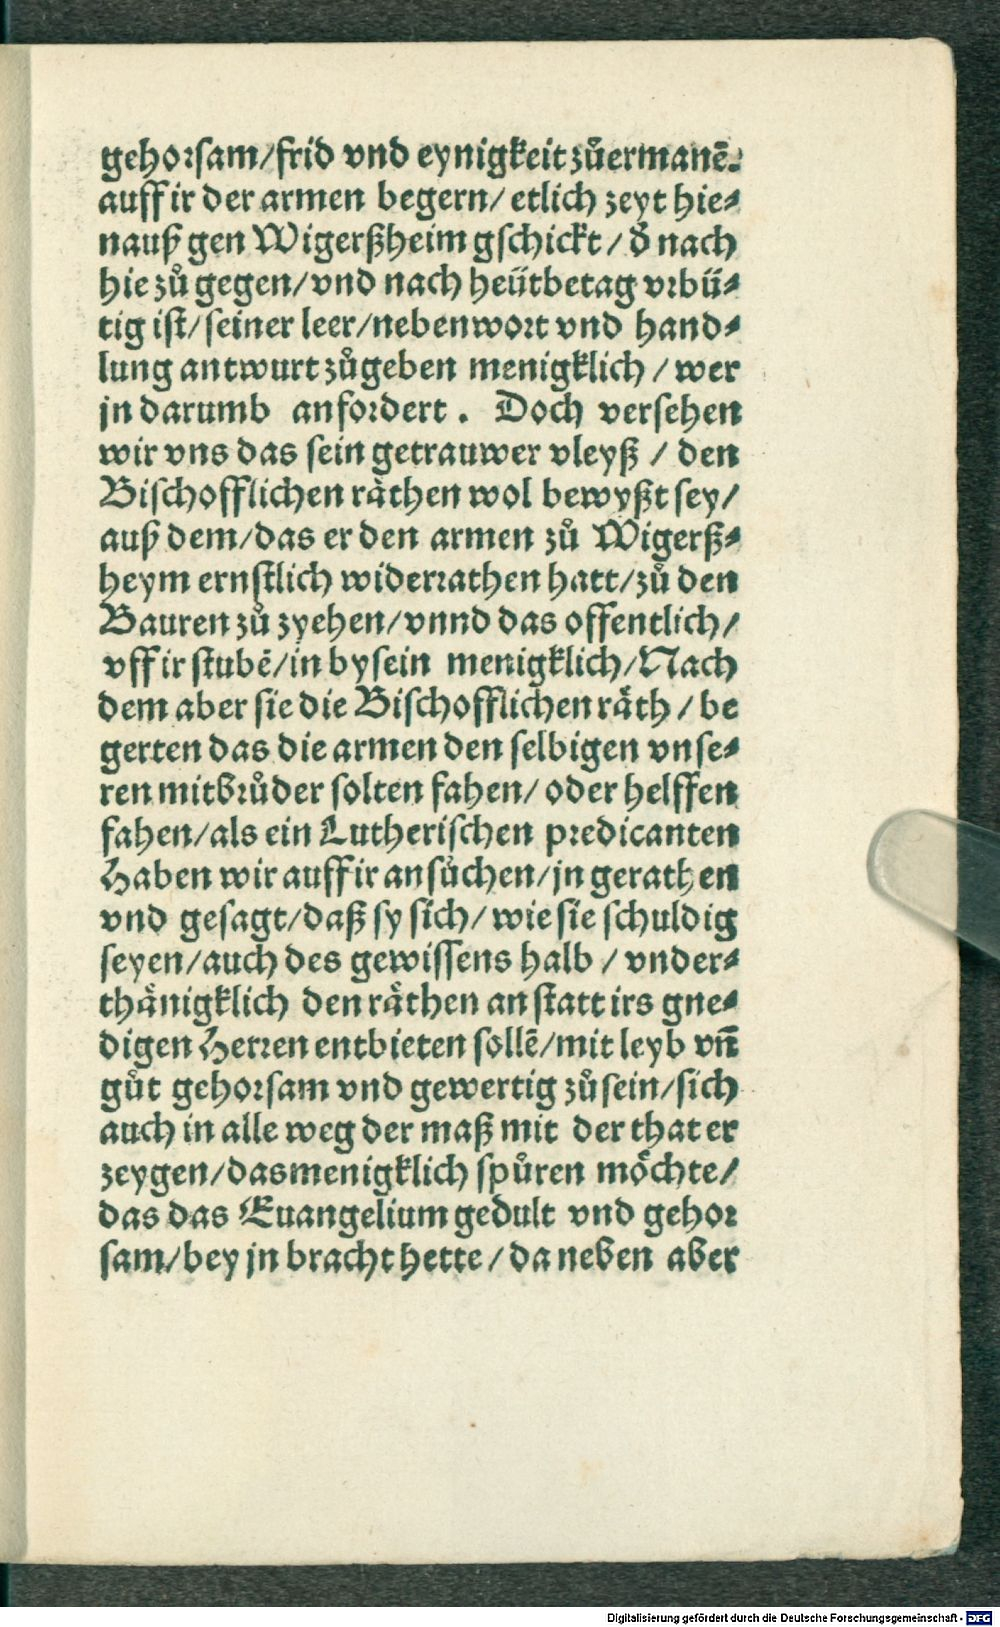 gehorsam/frid vnd eynigkeit zůermanē.
auff ir der armen begern/ etlich zeyt hie⸗
nauß gen Wigerßheim gschickt / d̓ nach
hie zů gegen/ vnd nach heütbetag vrbü⸗
tig ist/ seiner leer/nebenwort vnd hand⸗
lung antwurt zůgeben menigklich / wer
jn darumb anfordert . Doch versehen
wir vns das sein getrauwer vleyß / den
Bischofflichen räthen wol bewyßt sey/
auß dem/das er den armen zů Wigerß⸗
heym ernstlich widerrathen hatt/zů den
Bauren zů zyehen/vnnd das offentlich/
vff ir stubē/in bysein menigklich/Nach
dem aber sie die Bischofflichen räth / be
gerten das die armen den selbigen vnse⸗
ren mitbrůder solten fahen/ oder helffen
fahen/als ein Lutherischen predicanten
Haben wir auff ir ansůchen/jn gerathen
vnd gesagt/daß sy sich/ wie sie schuldig
seyen/auch des gewissens halb / vnder⸗
thänigklich den räthen an statt irs gne⸗
digen Herren entbieten sollē/mit leyb vñ
gůt gehorsam vnd gewertig zůsein/sich
auch in alle weg der maß mit der that er
zeygen/dasmenigklich spůren möchte/
das das Euangelium gedult vnd gehor
sam/bey jn bracht hette/da neben aber
Digitalisierung gefördert durch die Deutsche Forschungsgemeinschaft - DFG